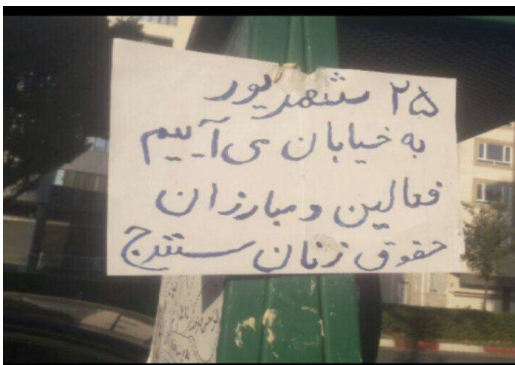 ۲۵ شهریور
به خیابان می آییم
فعالین و مبارزان
حقوق زنان سنندج